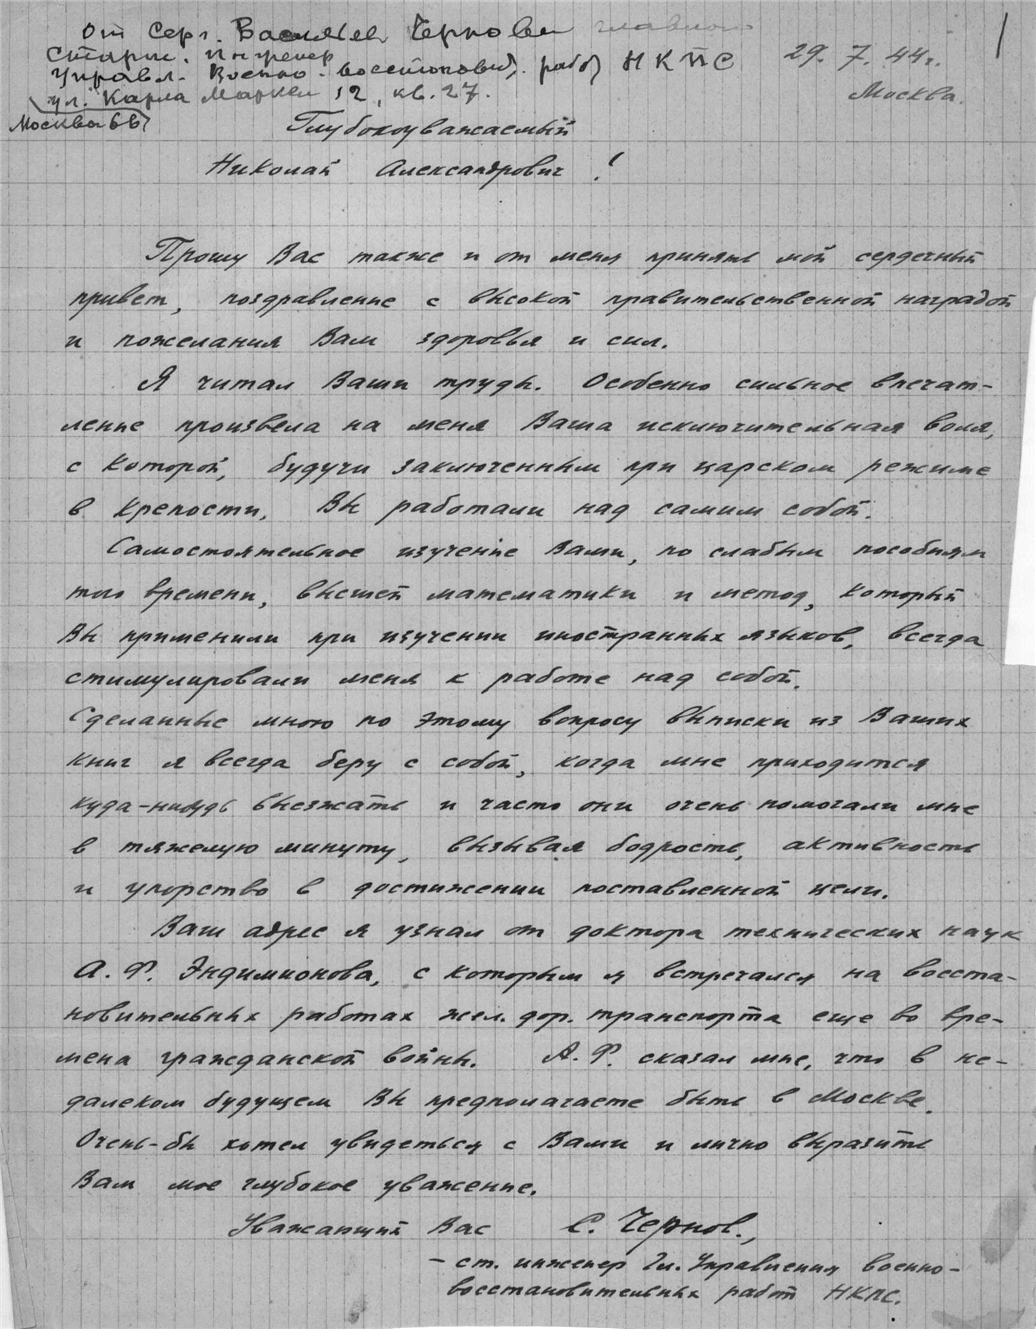 От Серг. Васильев. Чернова главного
Старш. инженер
Управл. Военно-восстановит. работ НКПС
ул. Карла Маркса 12, кв. 27.
Москва 66
29. 7. 44 г.
Москва.
Глубокоуважаемый
Николай Александрович!
Прошу Вас также и от меня принять мой сердечный
привет, поздравление с высокой правительственной наградой
и пожелания Вам здоровья и сил.
Я читал Ваши труды. Особенно сильное впечат-
ление произвела на меня Ваша исключительная воля,
с которой, будучи заключенным при царском режиме
в крепости, Вы работали над самим собой.
Самостоятельное изучение Вами, по слабым пособиям
того времени, высшей математики и метод, который
Вы применили при изучении иностранных языков, всегда
стимулировали меня к работе над собой.
Сделанные мною по этому вопросу выписки из Ваших
книг я всегда беру с собой, когда мне приходится
куда-нибудь выезжать и часто они очень помогали мне
в тяжелую минуту, вызывая бодрость, активность
и упорство в достижении поставленной цели.
Ваш адрес я узнал от доктора технических наук
А. Ф. Эндимионова, с которым я встречался на восста-
новительных работах жел. дор. транспорта еще во вре-
мена гражданской войны. А. Ф. сказал мне, что в не-
далеком будущем Вы предполагаете быть в Москве.
Очень-бы хотел увидеться с Вами и лично выразить
Вам мое глубокое уважение.
Уважающий Вас С. Чернов.,
- ст. инженер Гл. Управления военно-
восстановительных работ НКПС.